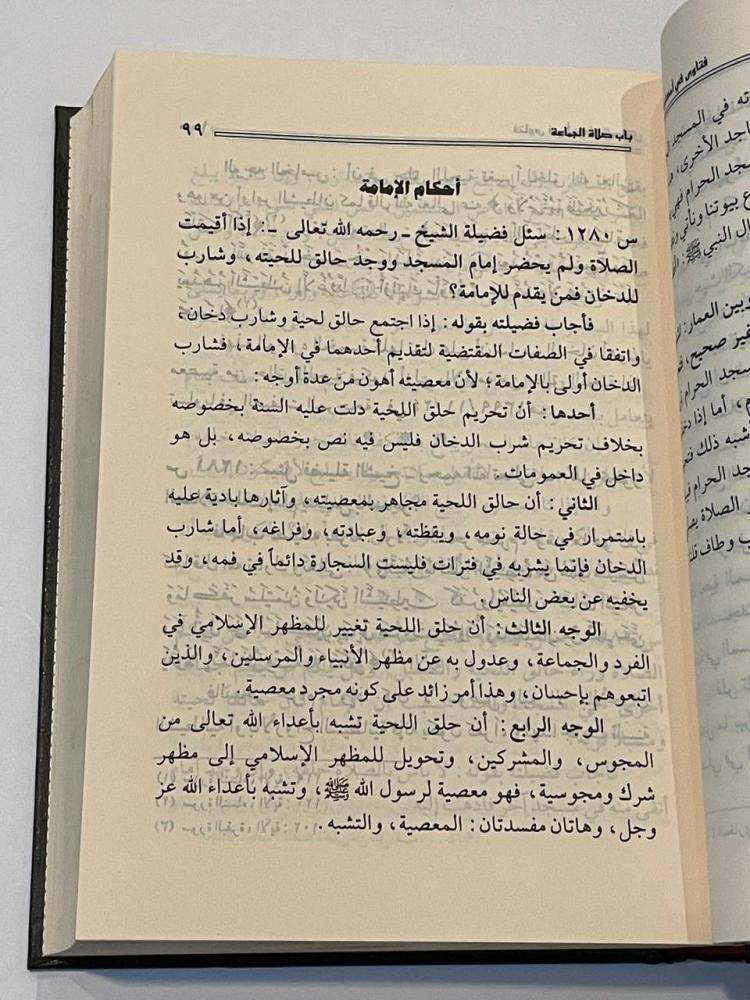 باب صلاة الجماعة
٩٩
أحكام الإمامة
س ١٢٨٠: سئل فضيلة الشيخ ـ رحمه الله تعالى ـ: إذا أقيمت
الصلاة ولم يحضر إمام المسجد ووجد حالق للحيته، وشارب
للدخان فمن يقدم للإمامة؟
فأجاب فضيلته بقوله: إذا اجتمع حالق لحية وشارب دخان،
واتفقا في الصفات المقتضية لتقديم أحدهما في الإمامة، فشارب
الدخان أولى بالإمامة؛ لأن معصيته أهون من عدة أوجه:
أحدها: أن تحريم حلق اللحية دلت عليه السنة بخصوصه
بخلاف تحريم شرب الدخان فليس فيه نص بخصوصه، بل هو
داخل في العمومات.
الثاني: أن حالق اللحية مجاهر بمعصيته، وآثارها بادية عليه
باستمرار في حالة نومه، ويقظته، وعبادته، وفراغه، أما شارب
الدخان فإنما يشربه في فترات فليست السجارة دائماً في فمه، وقد
يخفيه عن بعض الناس.
الوجه الثالث: أن حلق اللحية تغيير للمظهر الإسلامي في
الفرد والجماعة، وعدول به عن مظهر الأنبياء والمرسلين، والذين
اتبعوهم بإحسان، وهذا أمر زائد على كونه مجرد معصية.
الوجه الرابع: أن حلق اللحية تشبه بأعداء الله تعالى من
المجوس، والمشركين، وتحويل للمظهر الإسلامي إلى مظهر
شرك ومجوسية، فهو معصية لرسول الله ﷺ، وتشبه بأعداء الله عز
وجل، وهاتان مفسدتان: المعصية، والتشبه.
فتاوى في
ته في المسجد
اجد الأخرى،
سجد الحرام
ع بيوتنا ونأتي
ال النبي ﷺ:
بين العمار:
غير صحيح،
سجد الحرام
، أما إذا
أشبه ذلك
جد الحرام
الصلاة
ب وطاف